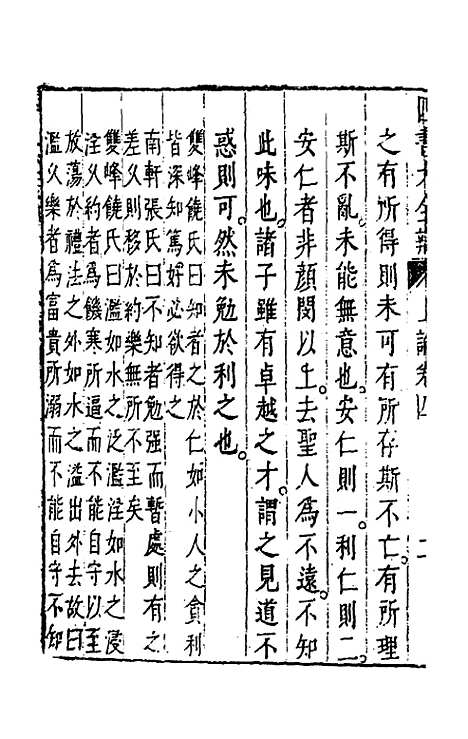 四書大全辯 上論卷四 二
之有所得則未可有所存斯不亡有所理
斯不亂未能無意也安仁則一利仁則二
安仁者非顏閔以上去聖人爲不遠不知
此味也諸子雖有卓越之才謂之見道不
惑則可然未勉於利之也
雙峰饒氏曰知者之於仁如小人之貪利
皆深知篤好必欲得之
南軒張氏曰不知者勉强而暫處則有之
差久則移於約樂無所不至矣
雙峰饒氏曰濫如水之泛濫淫如水之浸
淫久約者爲饑寒所逼而不能自守以至
放蕩於禮法之外如水之溢出外去故曰
濫久樂者爲富貴所溺而不能自守不知